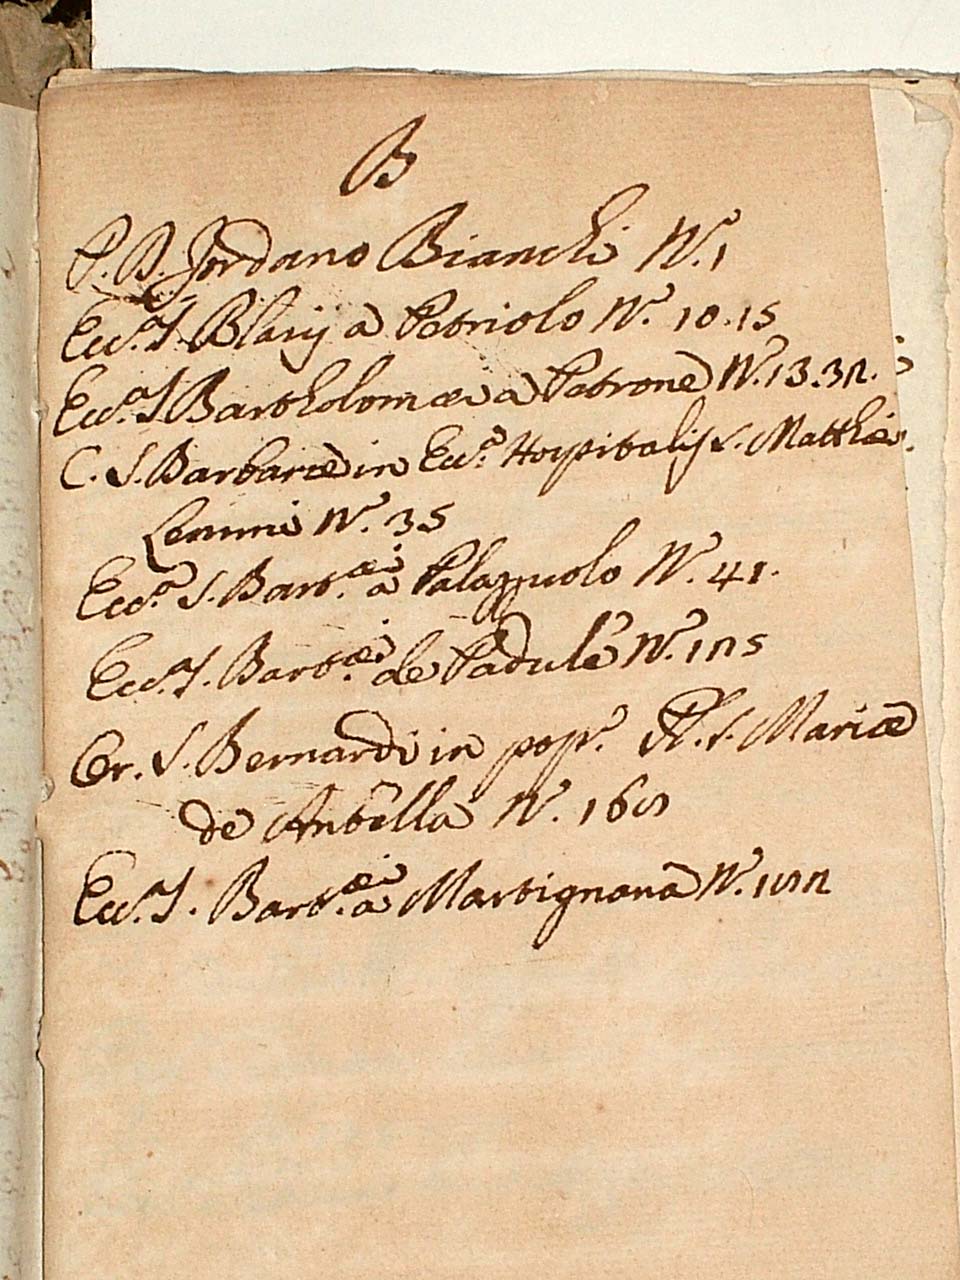 B
P. D. Jordano Bianchi N. 1
Ecc.a S. Blasij a Petriolo N. 10.15
Ecc.a S. Bartholomæi a Petrone N. 13.32.
C. S. Barbaræ in Ecc.a Hospitalis S. Matthæi
Lemmi N. 35
Ecc.a S. Bart.æi a Palazzuolo N. 41.
Ecc.a S. Bart.æi de Padule N. 125
Or. S. Bernardi in pop. Pl. S. Mariæ
de Antella N. 168
Ecc.a S. Bart.æi a Martignana N. 182